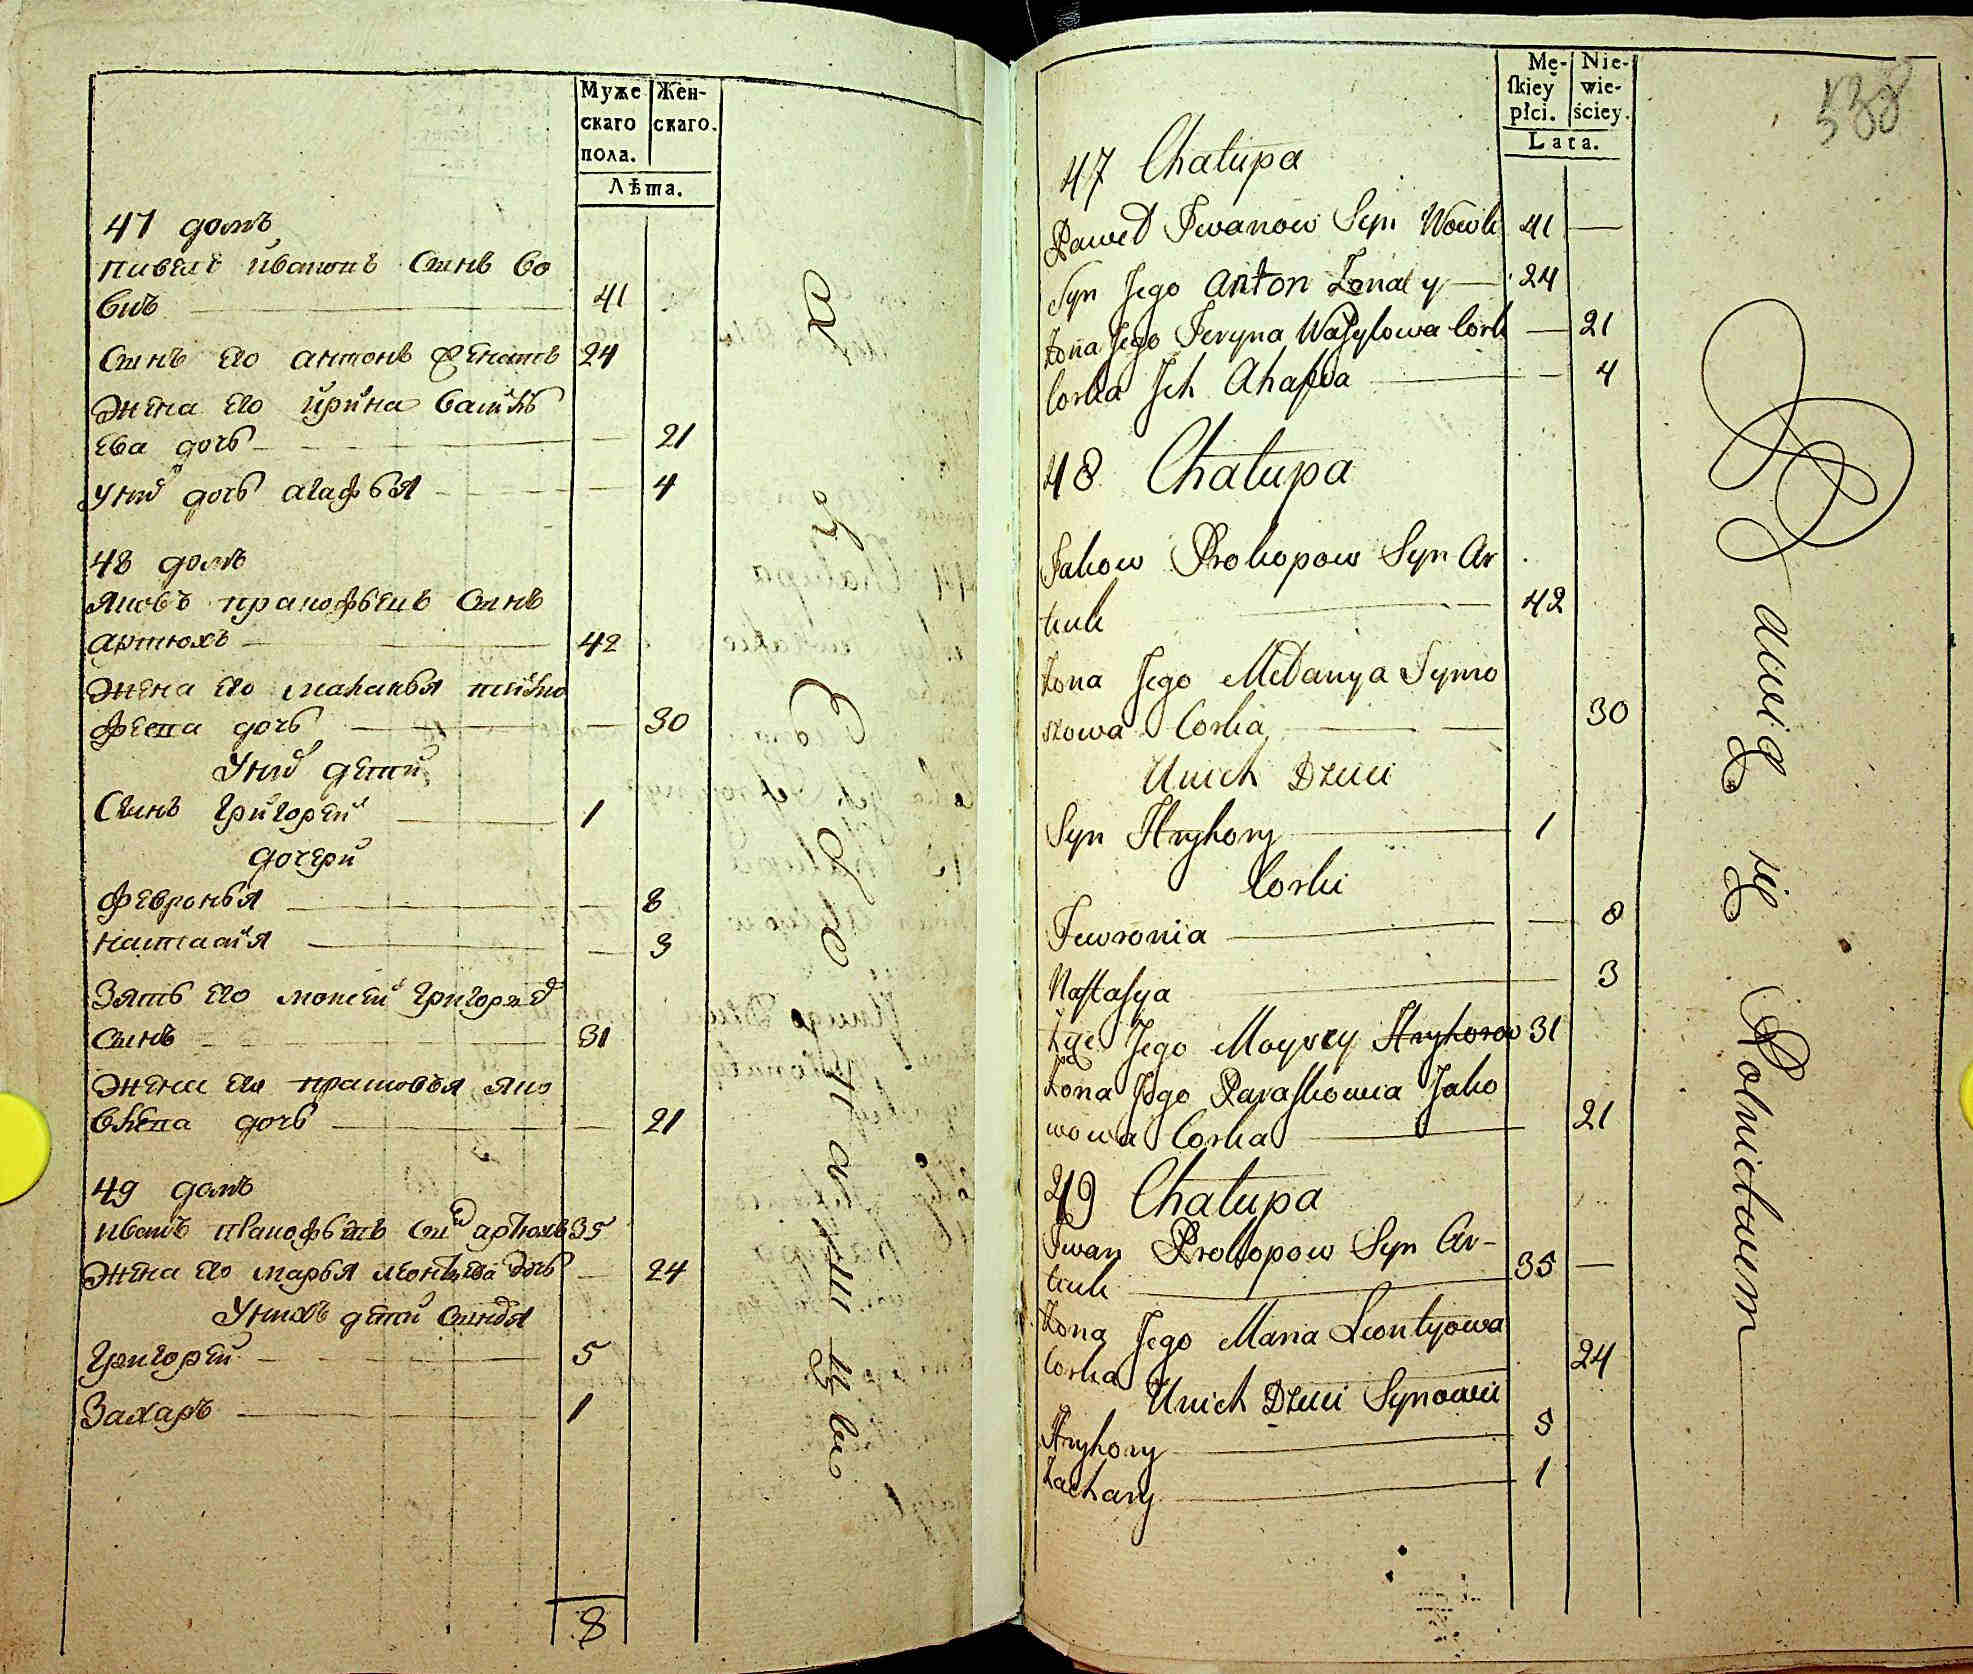 Муже
скаго
пола.
Жен-
скаго.
Лѣта.
47 домъ
павелъ ивановъ Сынъ во
викъ 41
Сынъ его антонъ женатъ 24
жена его ирина василь
ева дочь — 21
Уних дочь агафья — 4
48 домъ
яковъ пракофьевъ Сынъ
артюхъ 42
жена его маланья тимо
феева дочь — 30
Уних дети
Сынъ григорей 1
дочери
февронья — 8
настасия — 3
Зять его мойсей григорьев
Сынъ 31
жена его прасковья яко
влева дочь — 21
49 домъ
иванъ пракофьевъ Сын артюхъ 35
жена его марья леонтьева дочь — 24
Унихъ дети Сыновья
григорей 5
Захаръ 1
8
Mę-
ſkiey
płci.
Nie-
wie-
ściey.
Lata.
538
47 Chałupa
Paweł Iwanow Syn Wowk 41 —
Syn Jego Anton Żonaty — 24
Żona Jego Jeryna Wasylowa Cork — 21
Corka Ich Ahafia — 4
48 Chałupa
Jakow Prokopow Syn Ar
tiuk 42
Żona Jego Mełanya Tymo
szowa Corka — 30
Unich Dzieci
Syn Hryhory 1
Corki
Fewronia — 8
Nastasya — 3
Zięć Jego Moysey Hryhorow 31
Żona Jego Paraskowia Jako
wowa Corka 21
49 Chałupa
Iwan Prokopow Syn Ar-
tiuk 35 —
Żona Jego Maria Leontyowa
Corka 24
Unich Dzieci Synowie
Hryhory 5
Zachary 1
Bawią się Rolnictwem